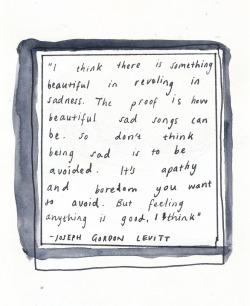 "I think there is something
beautiful in revoling in
sadness. The proof is how
beautiful sad songs can
be. So don't think
being sad is to be
avoided. It's apathy
and boredom you want
to avoid. But feeling
anything is good, I think"
-JOSEPH GORDON LEVITT